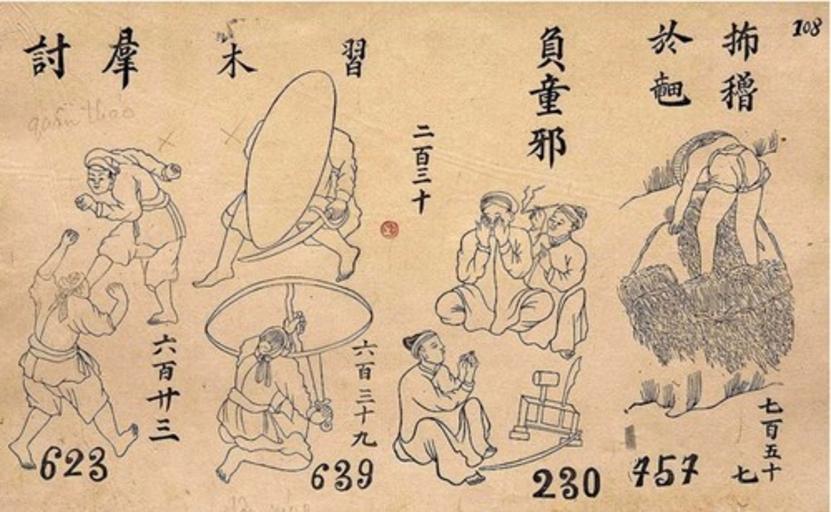 108
於
負童邪
二百三十
習木
羣討
quần thảo
七百五十七
六百三十九
六百廿三
623
639
230
757